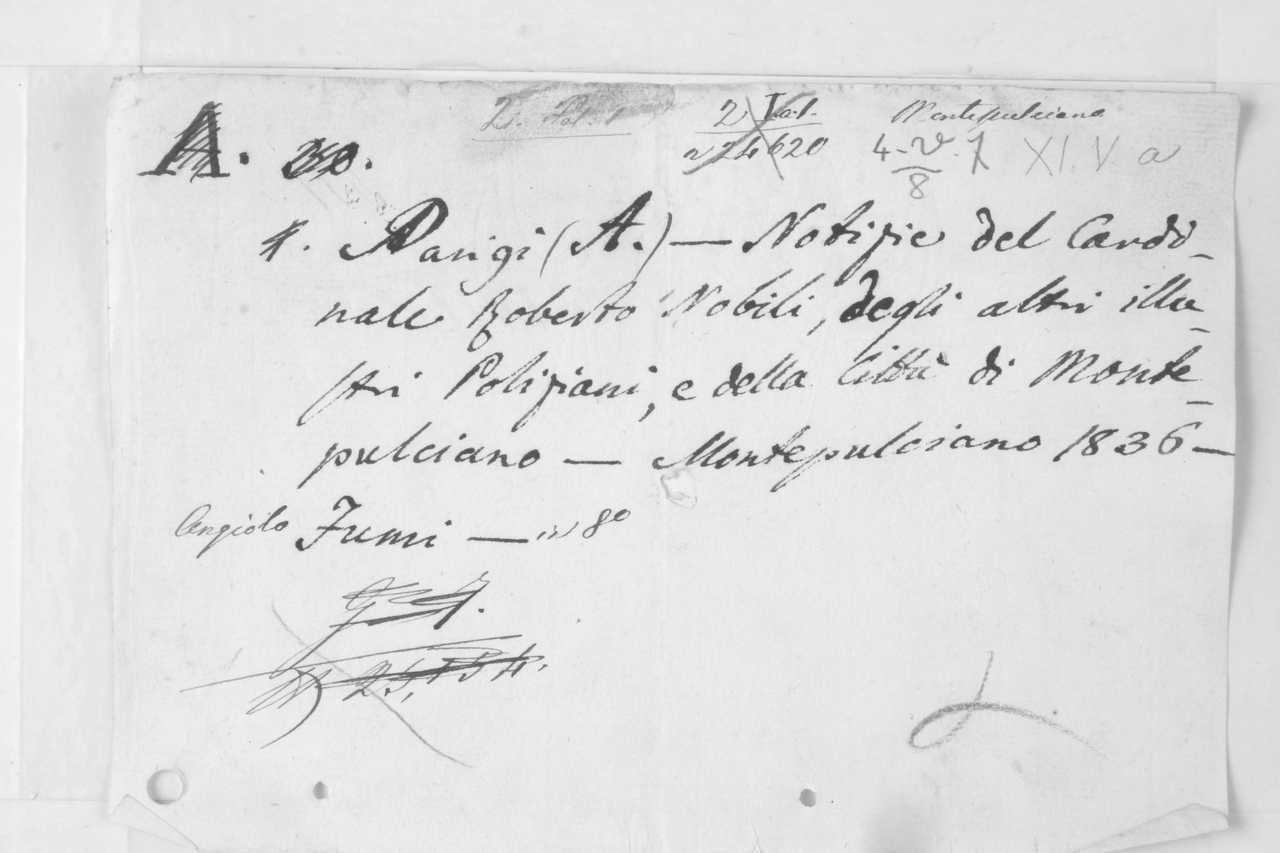 2 Ital. Montepulciano
24620 4-V.7 XI. V a
8
A.
4. Parigi (A.) — Notizie del Cardi-
nale Roberto Nobili, degli altri illu-
stri Poliziani, e della Città di Monte-
pulciano — Montepulciano 1836 —
Angiolo Fumi — in 8°
25,154.